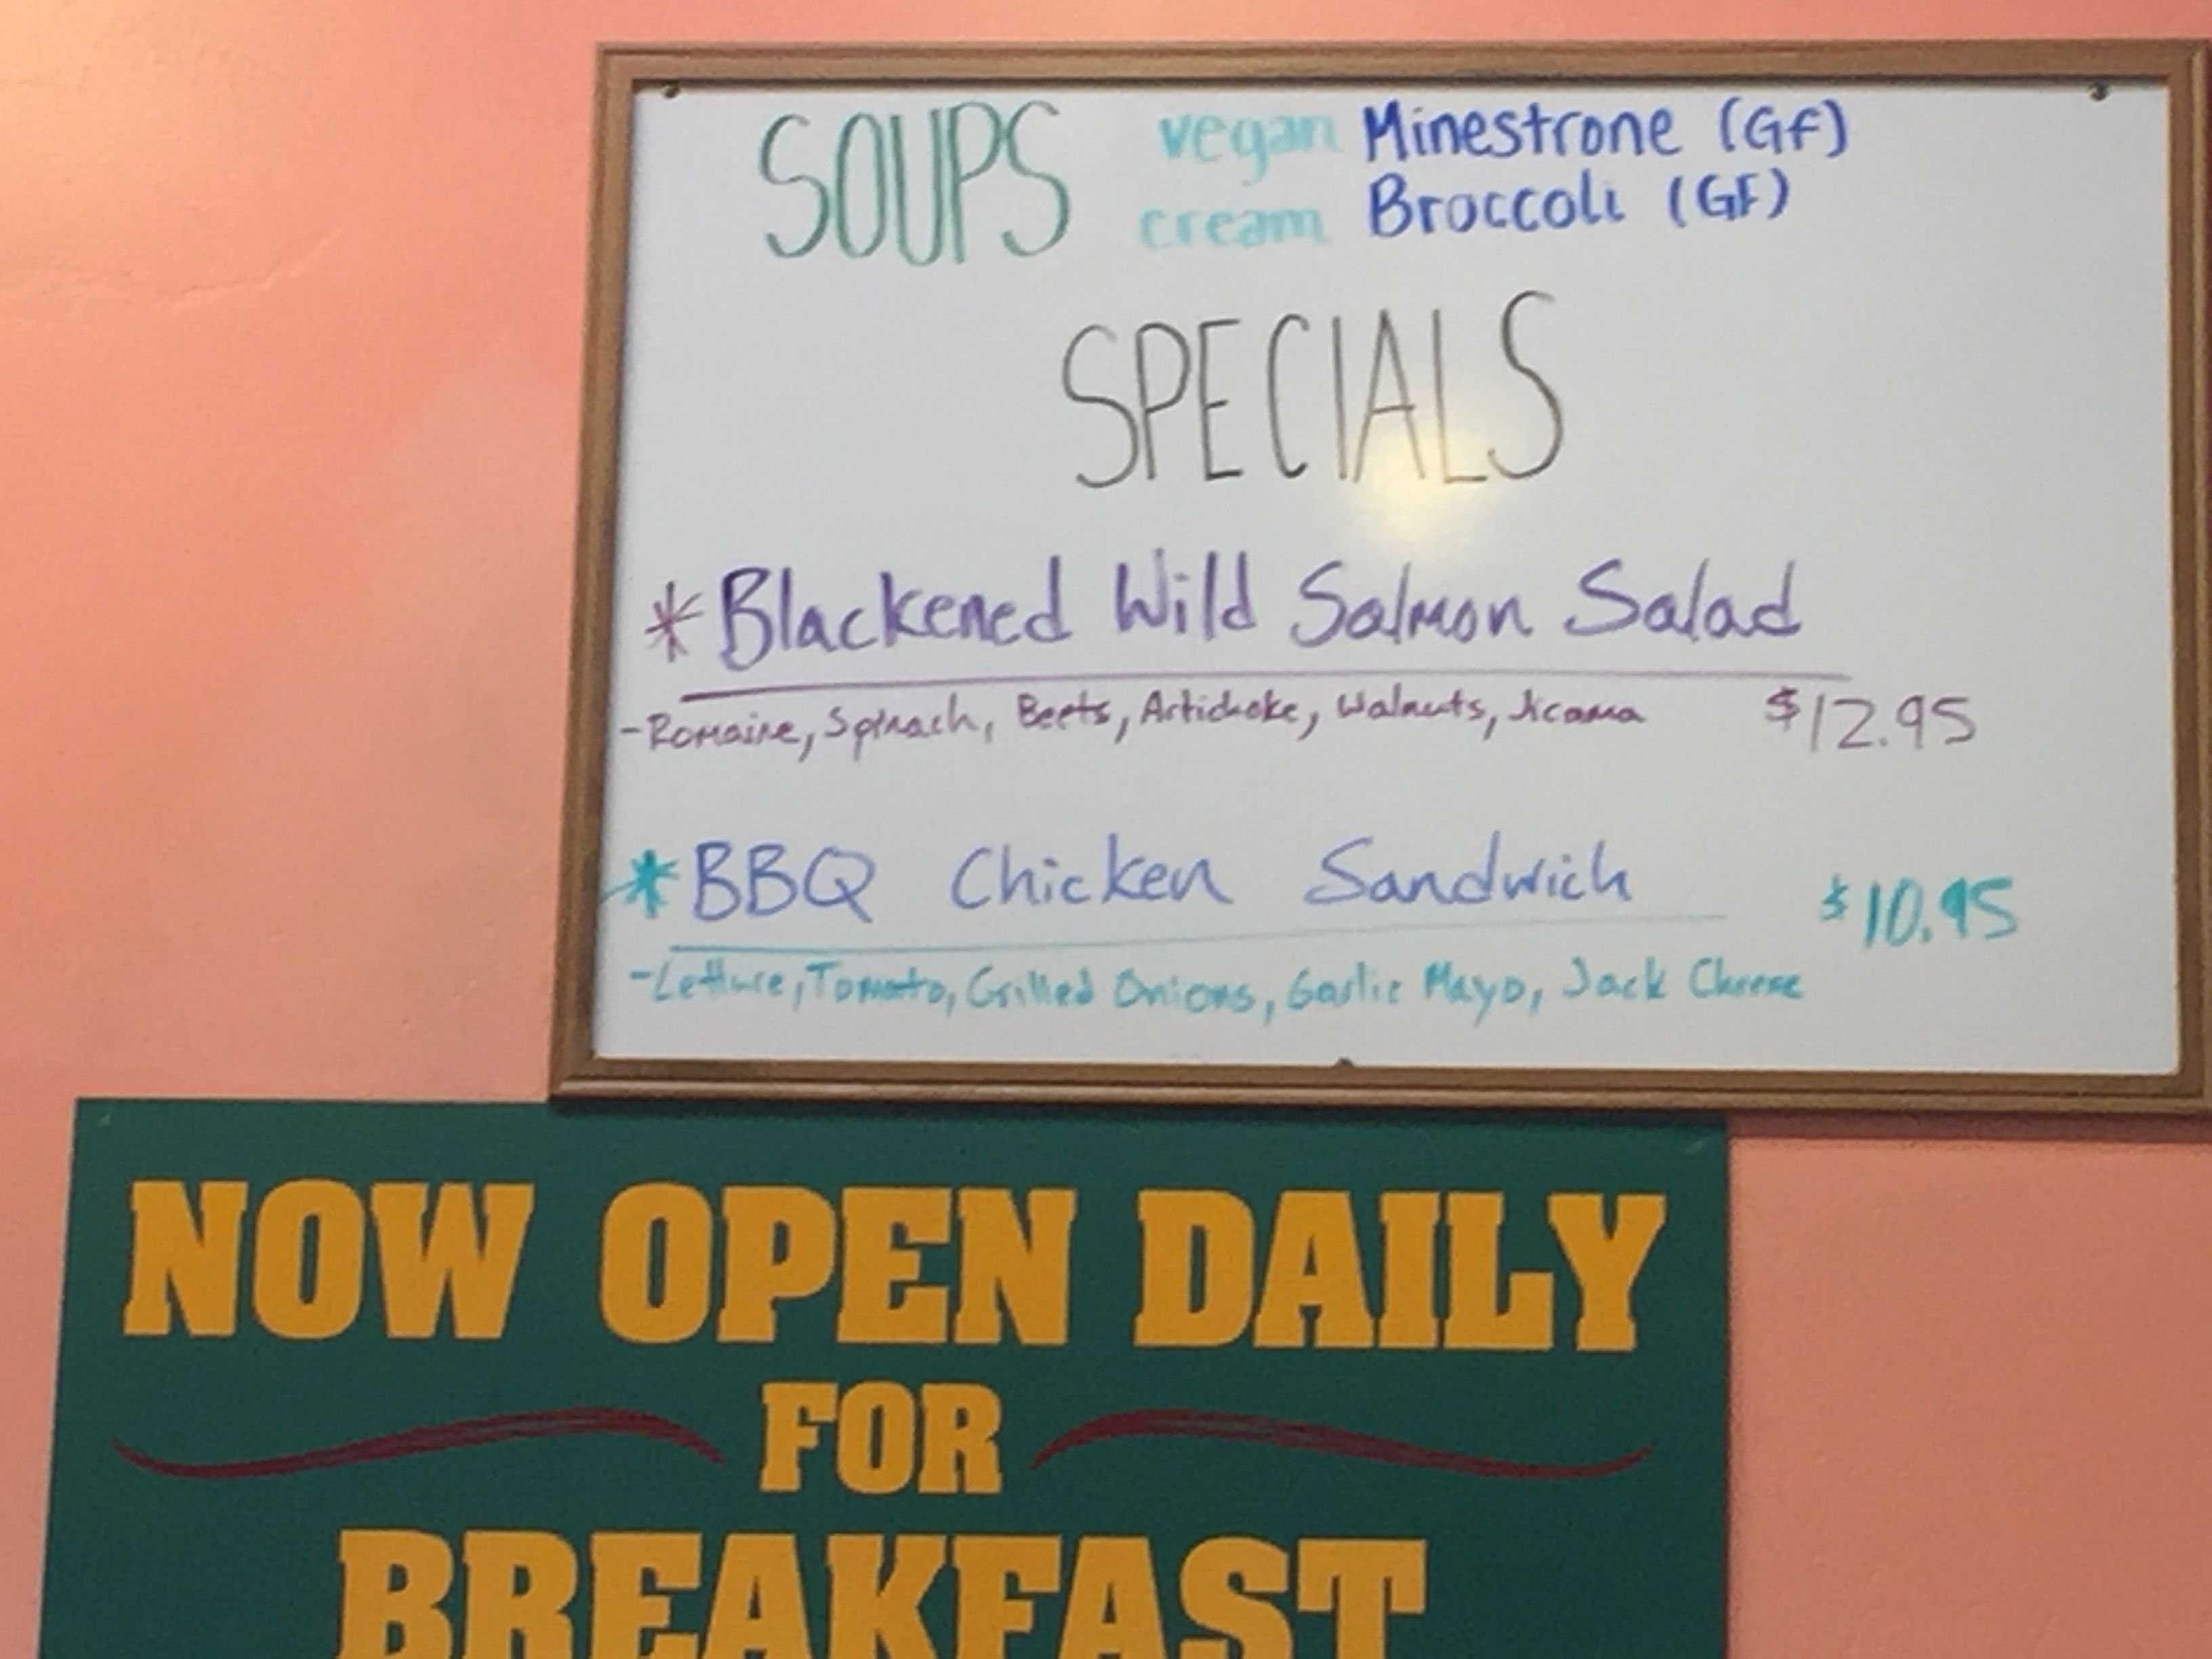 SOUPS vegan Minestrone (GF)
cream Broccoli (GF)
SPECIALS
*Blackened Wild Salmon Salad
-Romaine, Spinach, Beets, Artichoke, Walnuts, Jicama $12.95
*BBQ Chicken Sandwich $10.95
-Lettuce, Tomato, Grilled Onions, Garlic Mayo, Jack Cheese
NOW OPEN DAILY
FOR
BREAKFAST